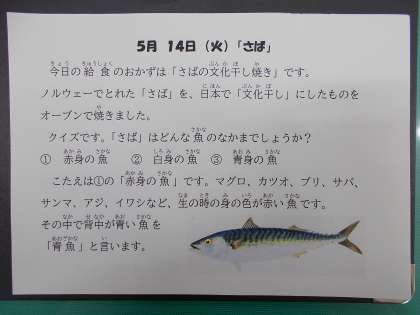 5月 14日(火)「さば」
今日の給食のおかずは「さばの文化干し焼き」です。
ノルウェーでとれた「さば」を、日本で「文化干し」にしたものを
オーブンで焼きました。
クイズです。「さば」はどんな魚のなかまでしょうか?
① 赤身の魚 ② 白身の魚 ③ 青身の魚
こたえは①の「赤身の魚」です。マグロ、カツオ、ブリ、サバ、
サンマ、アジ、イワシなど、生の時の身の色が赤い魚です。
その中で背中が青い魚を
「青魚」と言います。